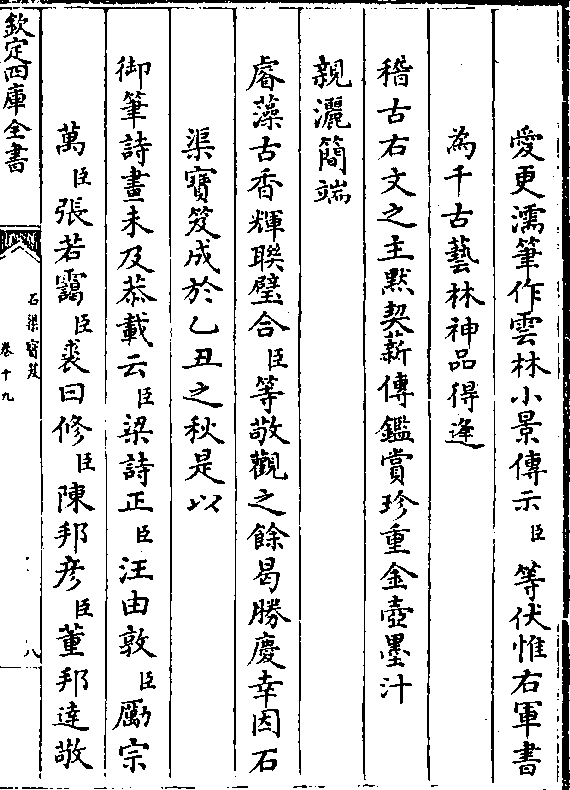 愛更濡筆作雲林小景傳示臣等伏惟右軍書
為千古藝林神品得逢
稽古右文之主默契薪傳鑑賞珍重金壺墨汁
親灑簡端
睿藻古香輝聯璧合臣等敬觀之餘曷勝慶幸因石
渠寶笈成於乙丑之秋是以
御筆詩畫未及恭載云臣梁詩正臣汪由敦臣勵宗
萬臣張若靄臣裘曰修臣陳邦彦臣董邦逹敬
欽定四庫全書
石渠寶笈
卷十九
八